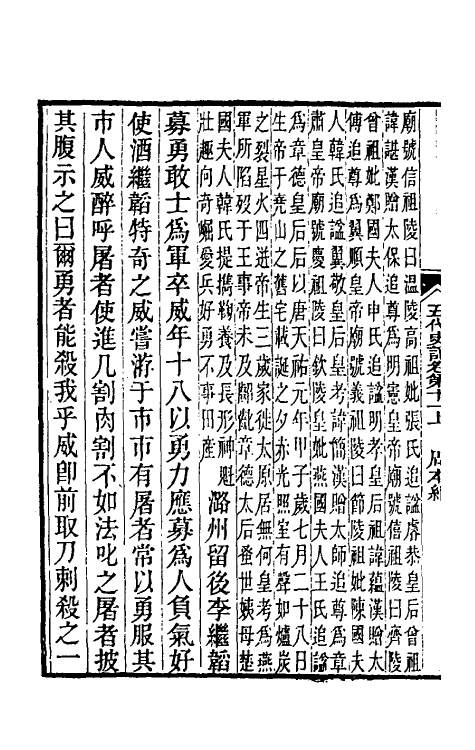 五代史記卷第十一上 周本紀
廟號信祖陵曰温陵高祖妣張氏追諡睿恭皇后曾祖
諱諶漢贈太保追尊爲明憲皇帝廟號僖祖陵曰齊陵
曾祖妣鄭國夫人申氏追諡明孝皇后祖諱蘊漢贈太
傅追尊爲翼順皇帝廟號義祖陵曰節陵祖妣陳國夫
人韓氏追諡翼敬皇后皇考諱簡漢贈太師追尊爲章
肅皇帝廟號慶祖陵曰欽陵皇妣燕國夫人王氏追諡
爲章德皇后后以唐天祐元年甲子歲七月二十八日
生帝于堯山之舊宅載誕之夕赤光照室有聲如爐炭
之裂星火四迸帝生三歲家徙太原居無何皇考爲燕
軍所陷歿于王事帝未及齠齔章德太后蚤世姨母楚
國夫人韓氏提攜鞠養及長形神魁
壯趣向奇崛愛兵好勇不事田產
潞州留後李繼韜
募勇敢士爲軍卒威年十八以勇力應募爲人負氣好
使酒繼韜特奇之威嘗游于市市有屠者常以勇服其
市人威醉呼屠者使進几割肉割不如法叱之屠者披
其腹示之曰爾勇者能殺我乎威卽前取刀刺殺之一